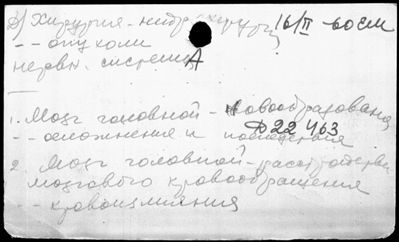 Д) Хирургия - нейрохирургия 16/II 60 см
- - опухоли
нервн. система
1. Мозг головной - новообразования
- - осложнения и последствия
Д 22 463
2. Мозг головной - расстройства
мозгового кровообращения
- - кровоизлияния